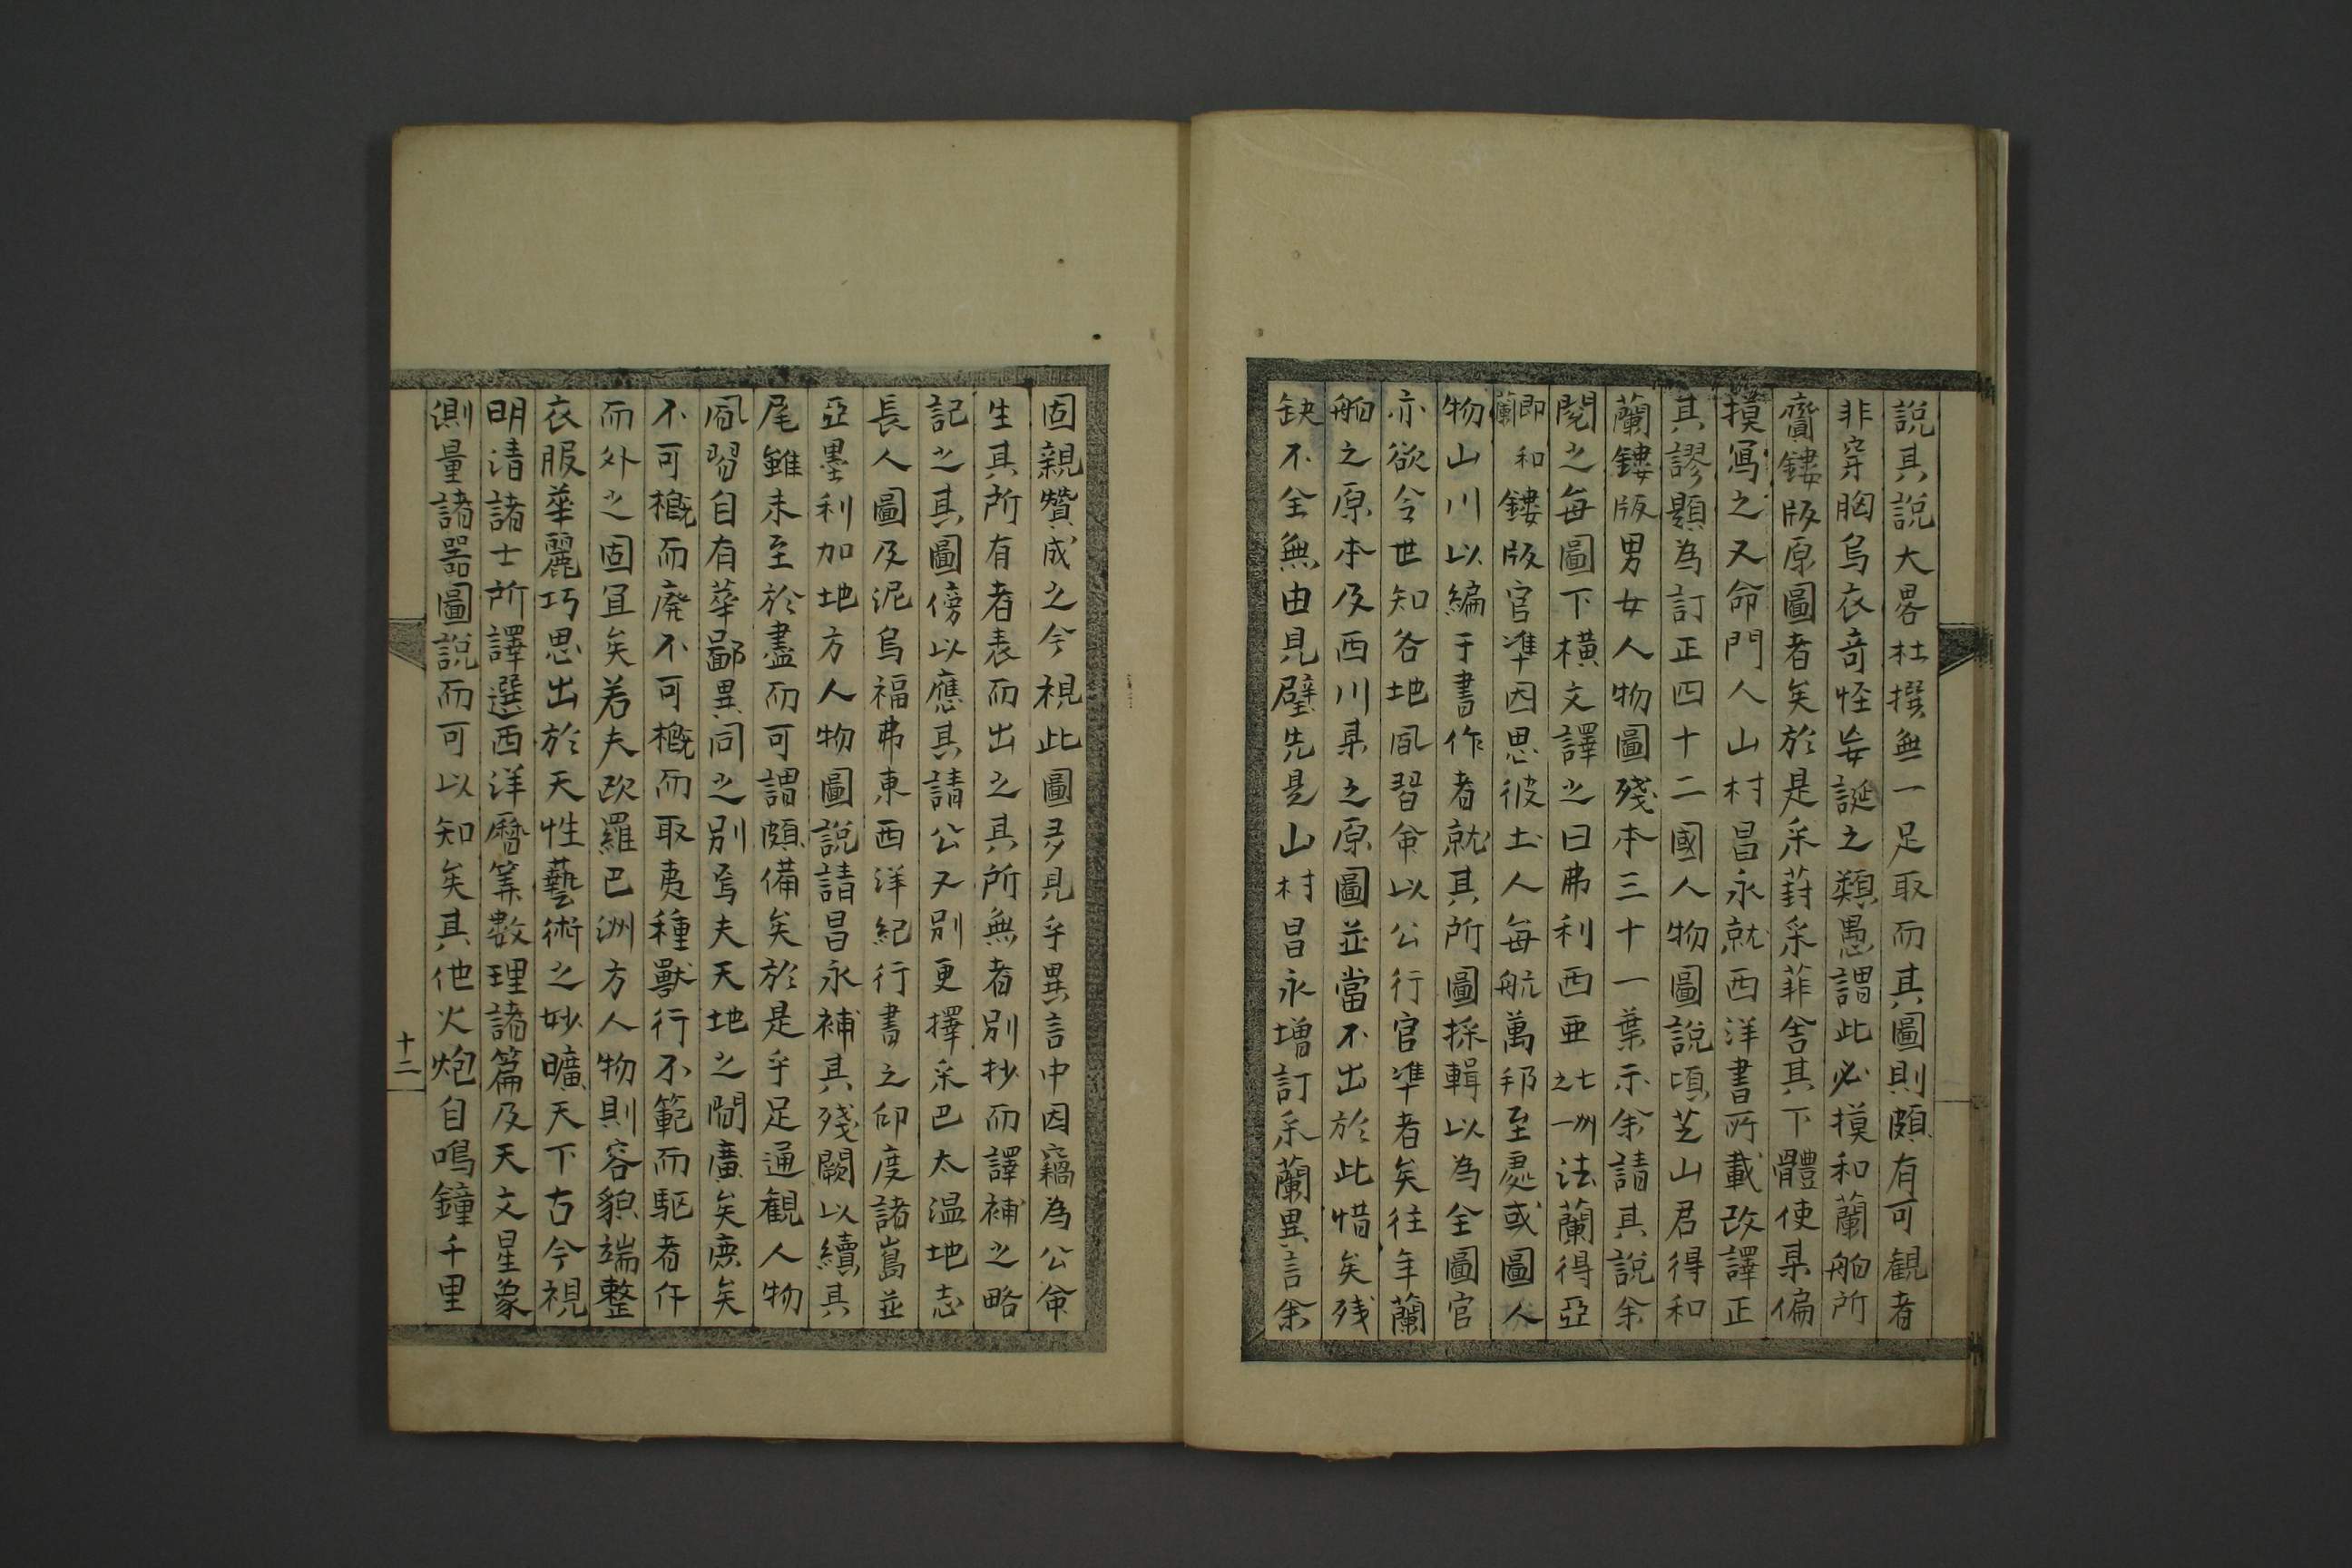 說其說大畧杜撰無一足取而其圖則頗有可観者
非穿胸烏衣竒怪妄誕之類愚謂此必摸和蘭舶所
齎鏤版原圖者矣於是采葑采菲舎其下體使某偏
摸寫之又命門人山村昌永就西洋書所載改譯正
其謬題為訂正四十二國人物圖說頃芝山君得和
蘭鏤版男女人物圖殘本三十一葉示余請其說余
閱之每圖下横文譯之曰弗利西亜七州之一法蘭得亞
即和蘭鏤版官準因思彼土人每航萬邦至處或圖人
物山川以編于書作者就其所圖採輯以為全圖官
亦欲令世知各地風習命以公行官準者矣往年蘭
舶之原本及西川某之原圖並當不出於此惜矣残
缺不全無由見璧先是山村昌永增訂采蘭異言余
固親贊成之今視此圖多見乎異言中因竊為公命
生其所有者表而出之其所無者別抄而譯補之略
記之其圖傍以應其請公又別更擇采巴太温地志
長人圖及泥烏福弗東西洋紀行書之印度諸嶌並
亞墨利加地方人物圖說請昌永補其殘闕以續其
尾雖未至於盡而可謂頗備矣於是乎足通観人物
風習自有華鄙異同之別焉夫天地之間廣矣庶矣
不可概而廃不可概而取夷種獸行不範而駆者仟
而外之固宜矣若夫欧羅巴洲方人物則容貌端整
衣服華麗巧思出於天性藝術之妙曠天下古今視
明清諸士所譯選西洋曆筭數理諸篇及天文星象
測量諸器圖說而可以知矣其他火炮自鳴鐘千里
十二